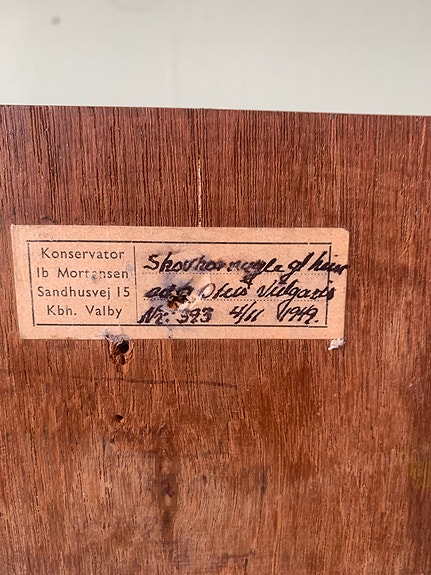 Konservator
Ib Mortensen
Sandhusvej 15
Kbh. Valby
Skovhornugle gl hun
Otus Vulgaris
Nr: 393 4/11 1949.